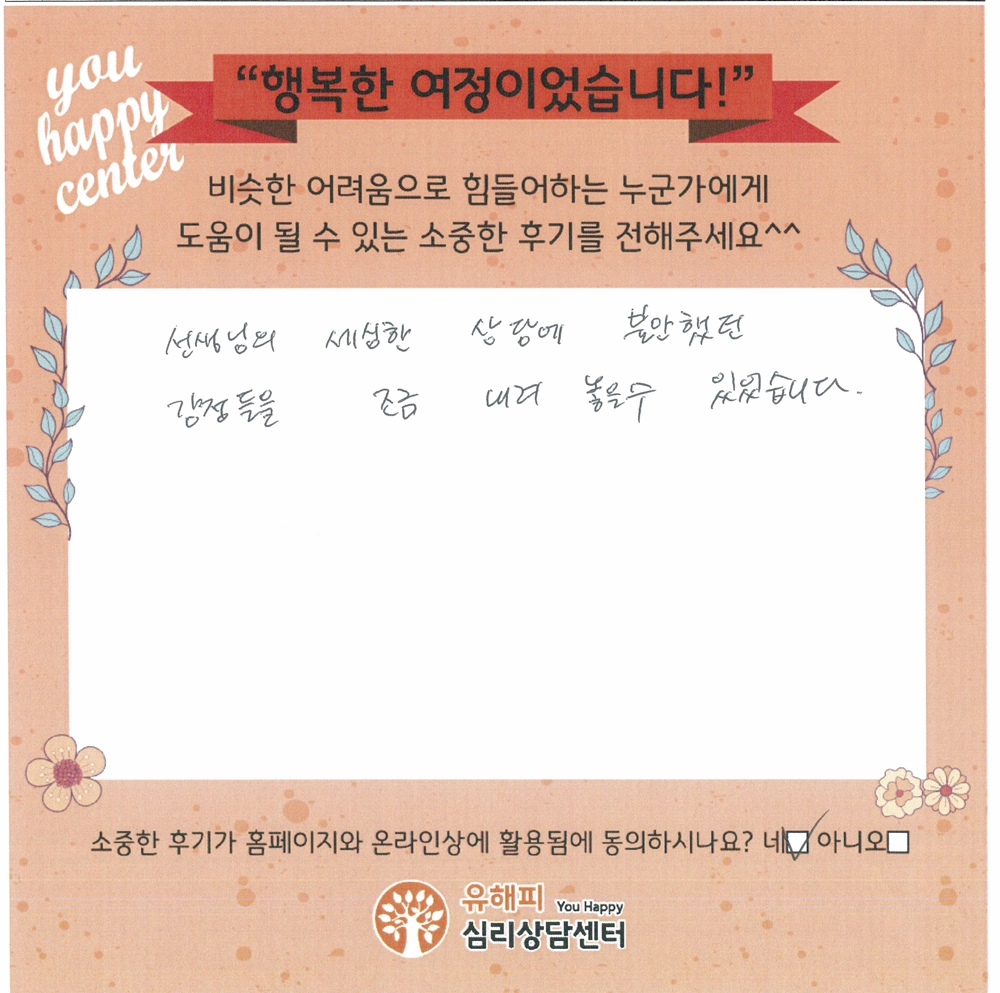 you
happy
center
“행복한 여정이었습니다!”
비슷한 어려움으로 힘들어하는 누군가에게
도움이 될 수 있는 소중한 후기를 전해주세요^^
선생님의 세심한 상담에 불안했던
감정들을 조금 내려 놓을수 있었습니다.
소중한 후기가 홈페이지와 온라인상에 활용됨에 동의하시나요? 네 아니오
유해피 You Happy
심리상담센터